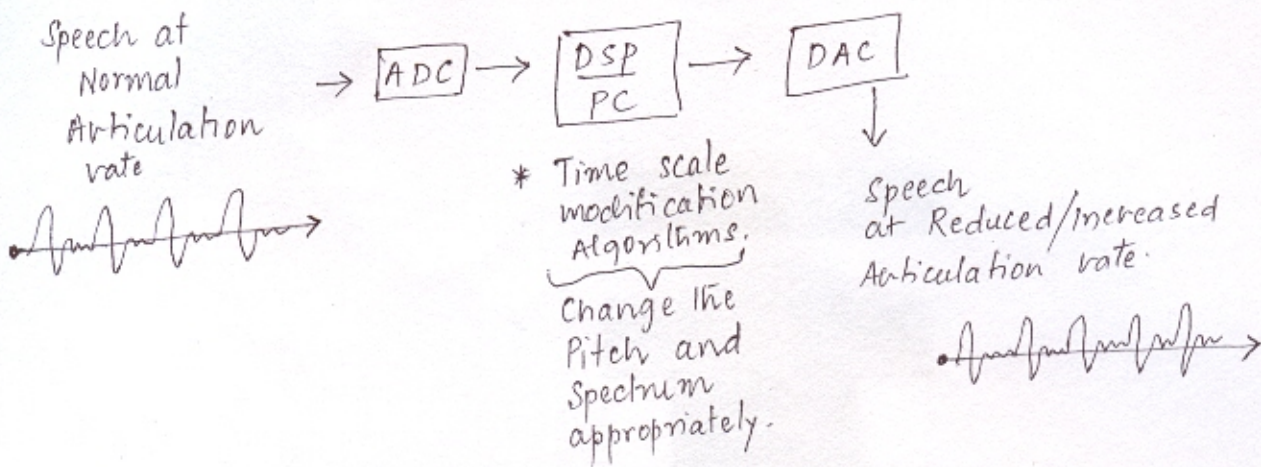 Speech at
Normal
Articulation
rate
ADC
DSP
PC
DAC
* Time scale
modification
Algorithms.
Change the
Pitch and
Spectrum
appropriately.
Speech
at Reduced/increased
Articulation rate.